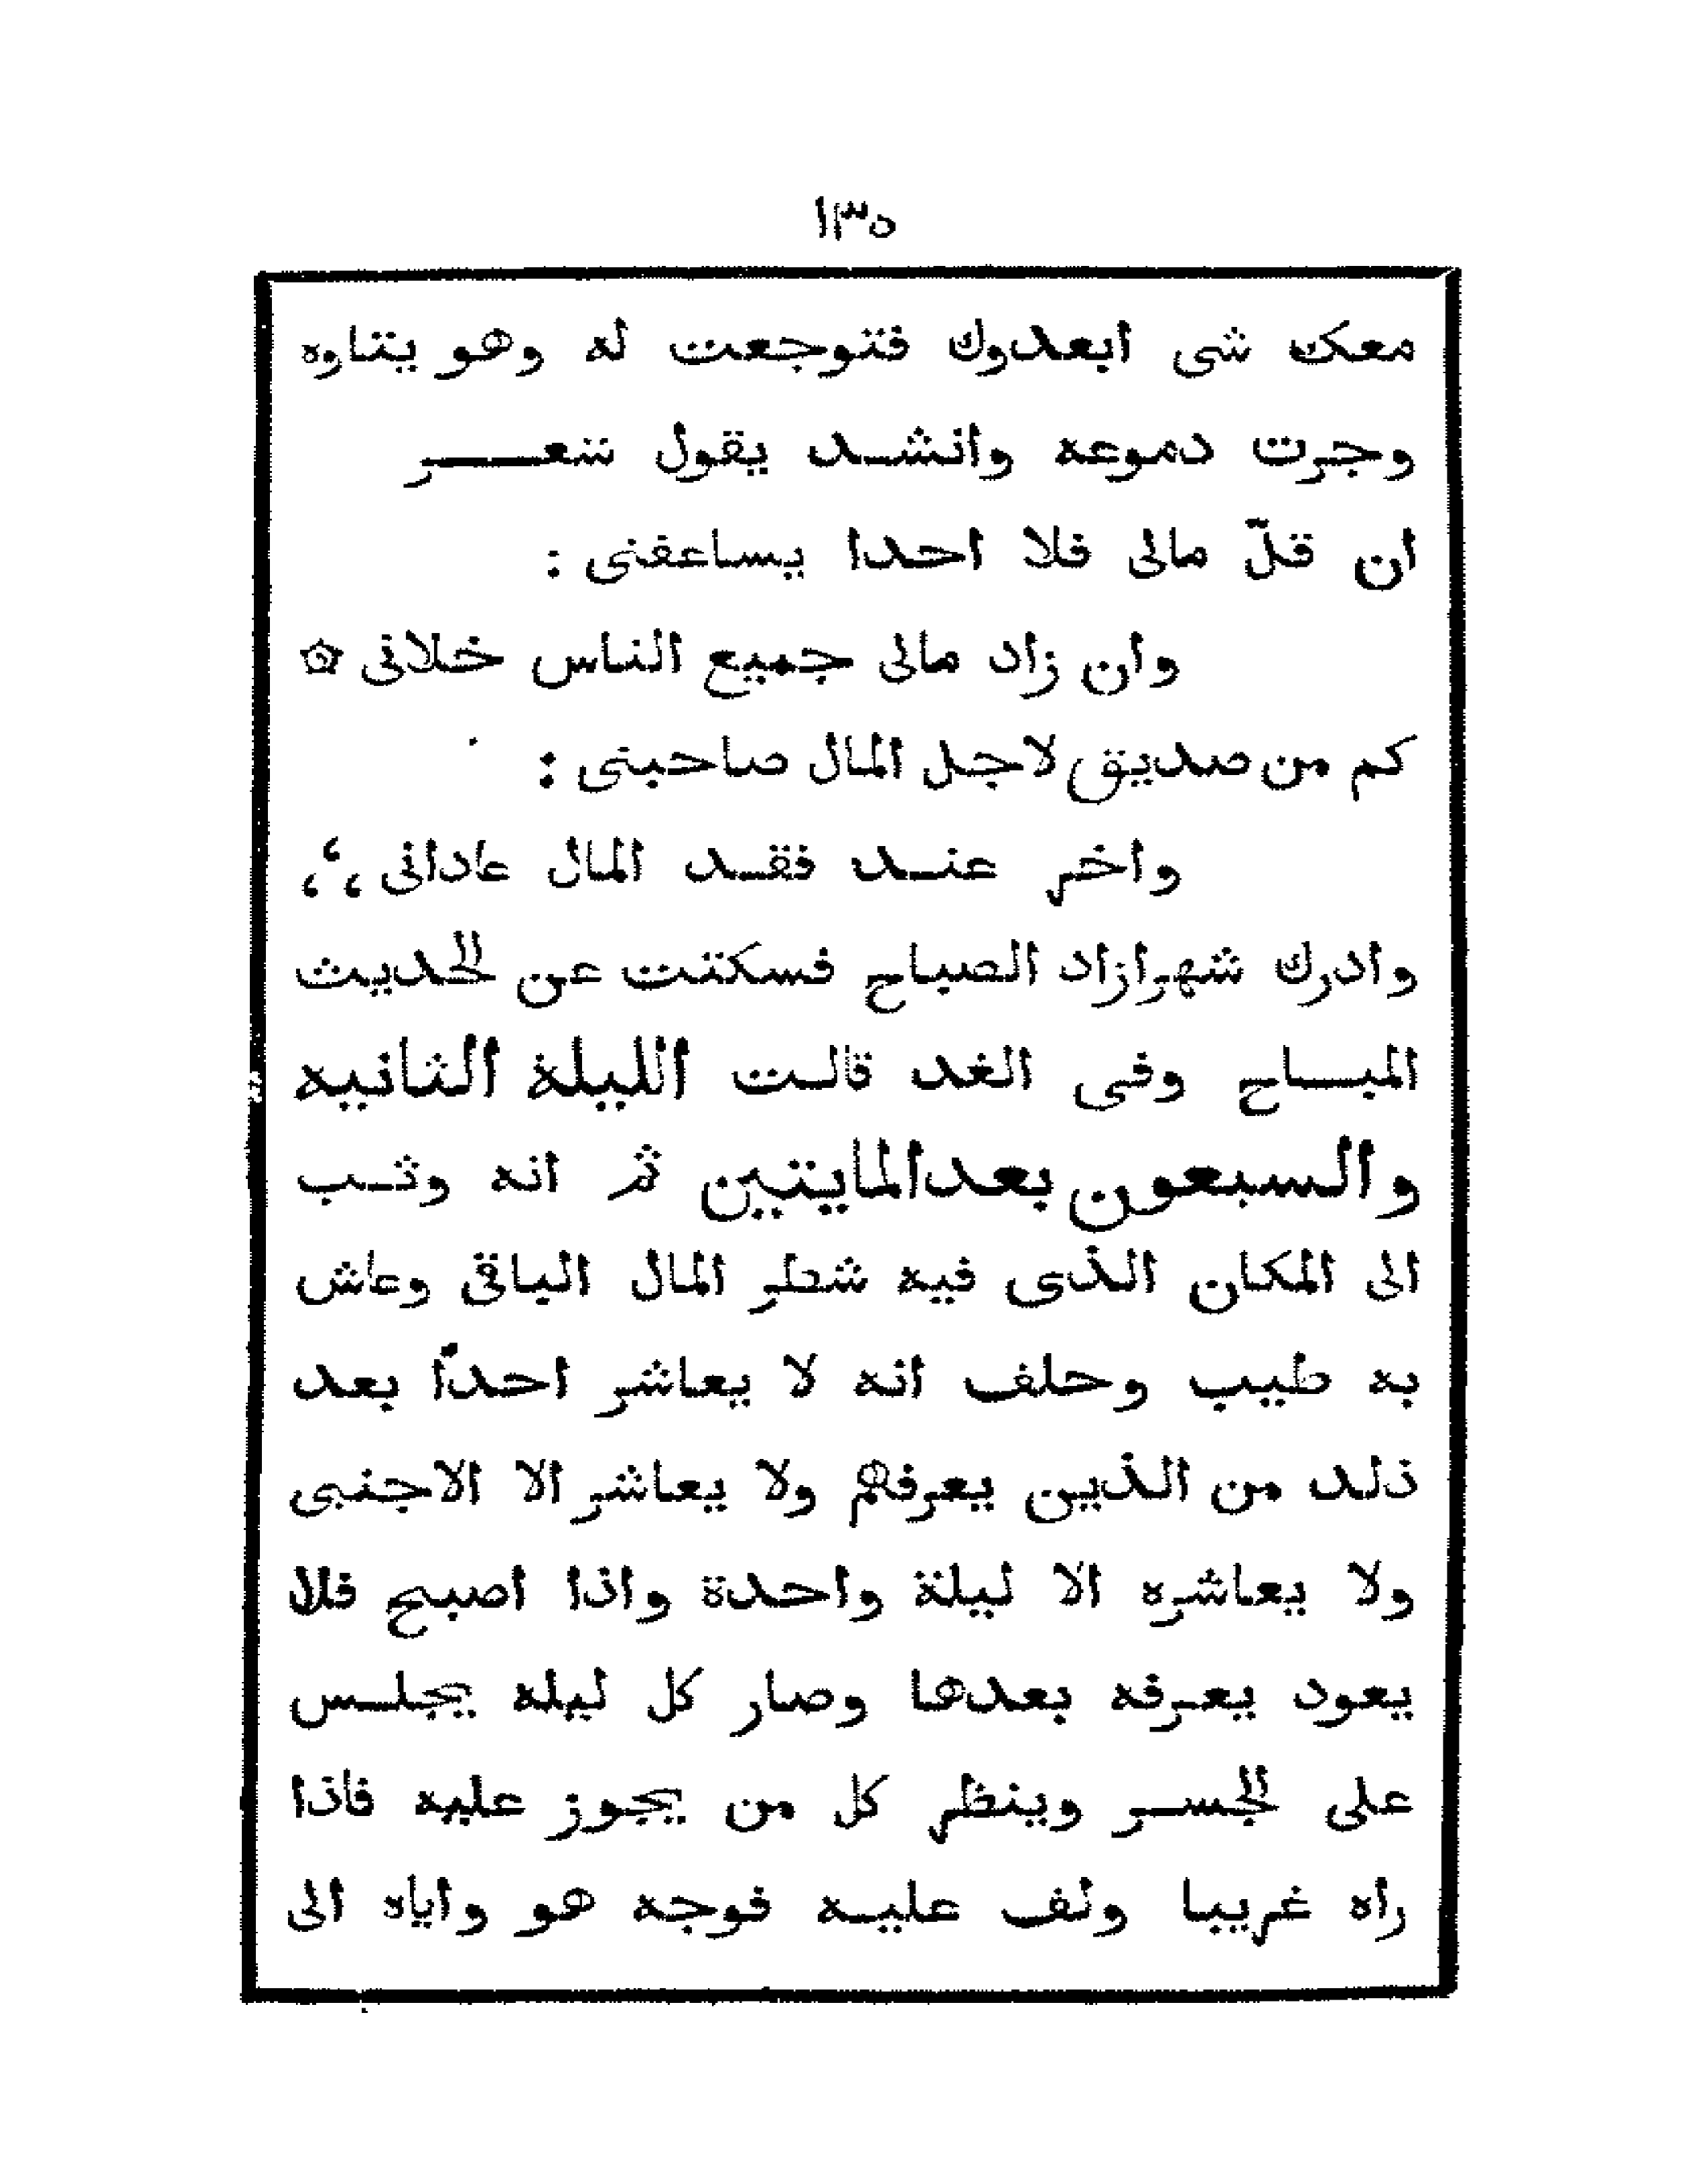 ١٣٥
معك شى ابعدوك فتوجعت له وهو يتاوه
وجرت دموعه وانشد يقول شعر
ان قلّ مالى فلا احدا يساعفنى :
وان زاد مالى جميع الناس خلانى ۞
كم من صديق لاجل المال صاحبنى :
واخر عند فقد المال عادانى ،‘،
وادرك شهرازاد الصباح فسكتت عن الحديث
المباح وفى الغد قالت الليلة الثانيه
والسبعون بعد المايتين ثم انه وثب
الى المكان الذى فيه شطر المال الباقى وعاش
به طيب وحلف انه لا يعاشر احدًا بعد
ذلك من الذين يعرفهم ولا يعاشر الا الاجنبى
ولا يعاشره الا ليلة واحدة واذا اصبح فلا
يعود يعرفه بعدها وصار كل ليله يجلس
على الجسر وينظر كل من يجوز عليه فاذا
راه غريبا ولف عليه فوجه هو واياه الى